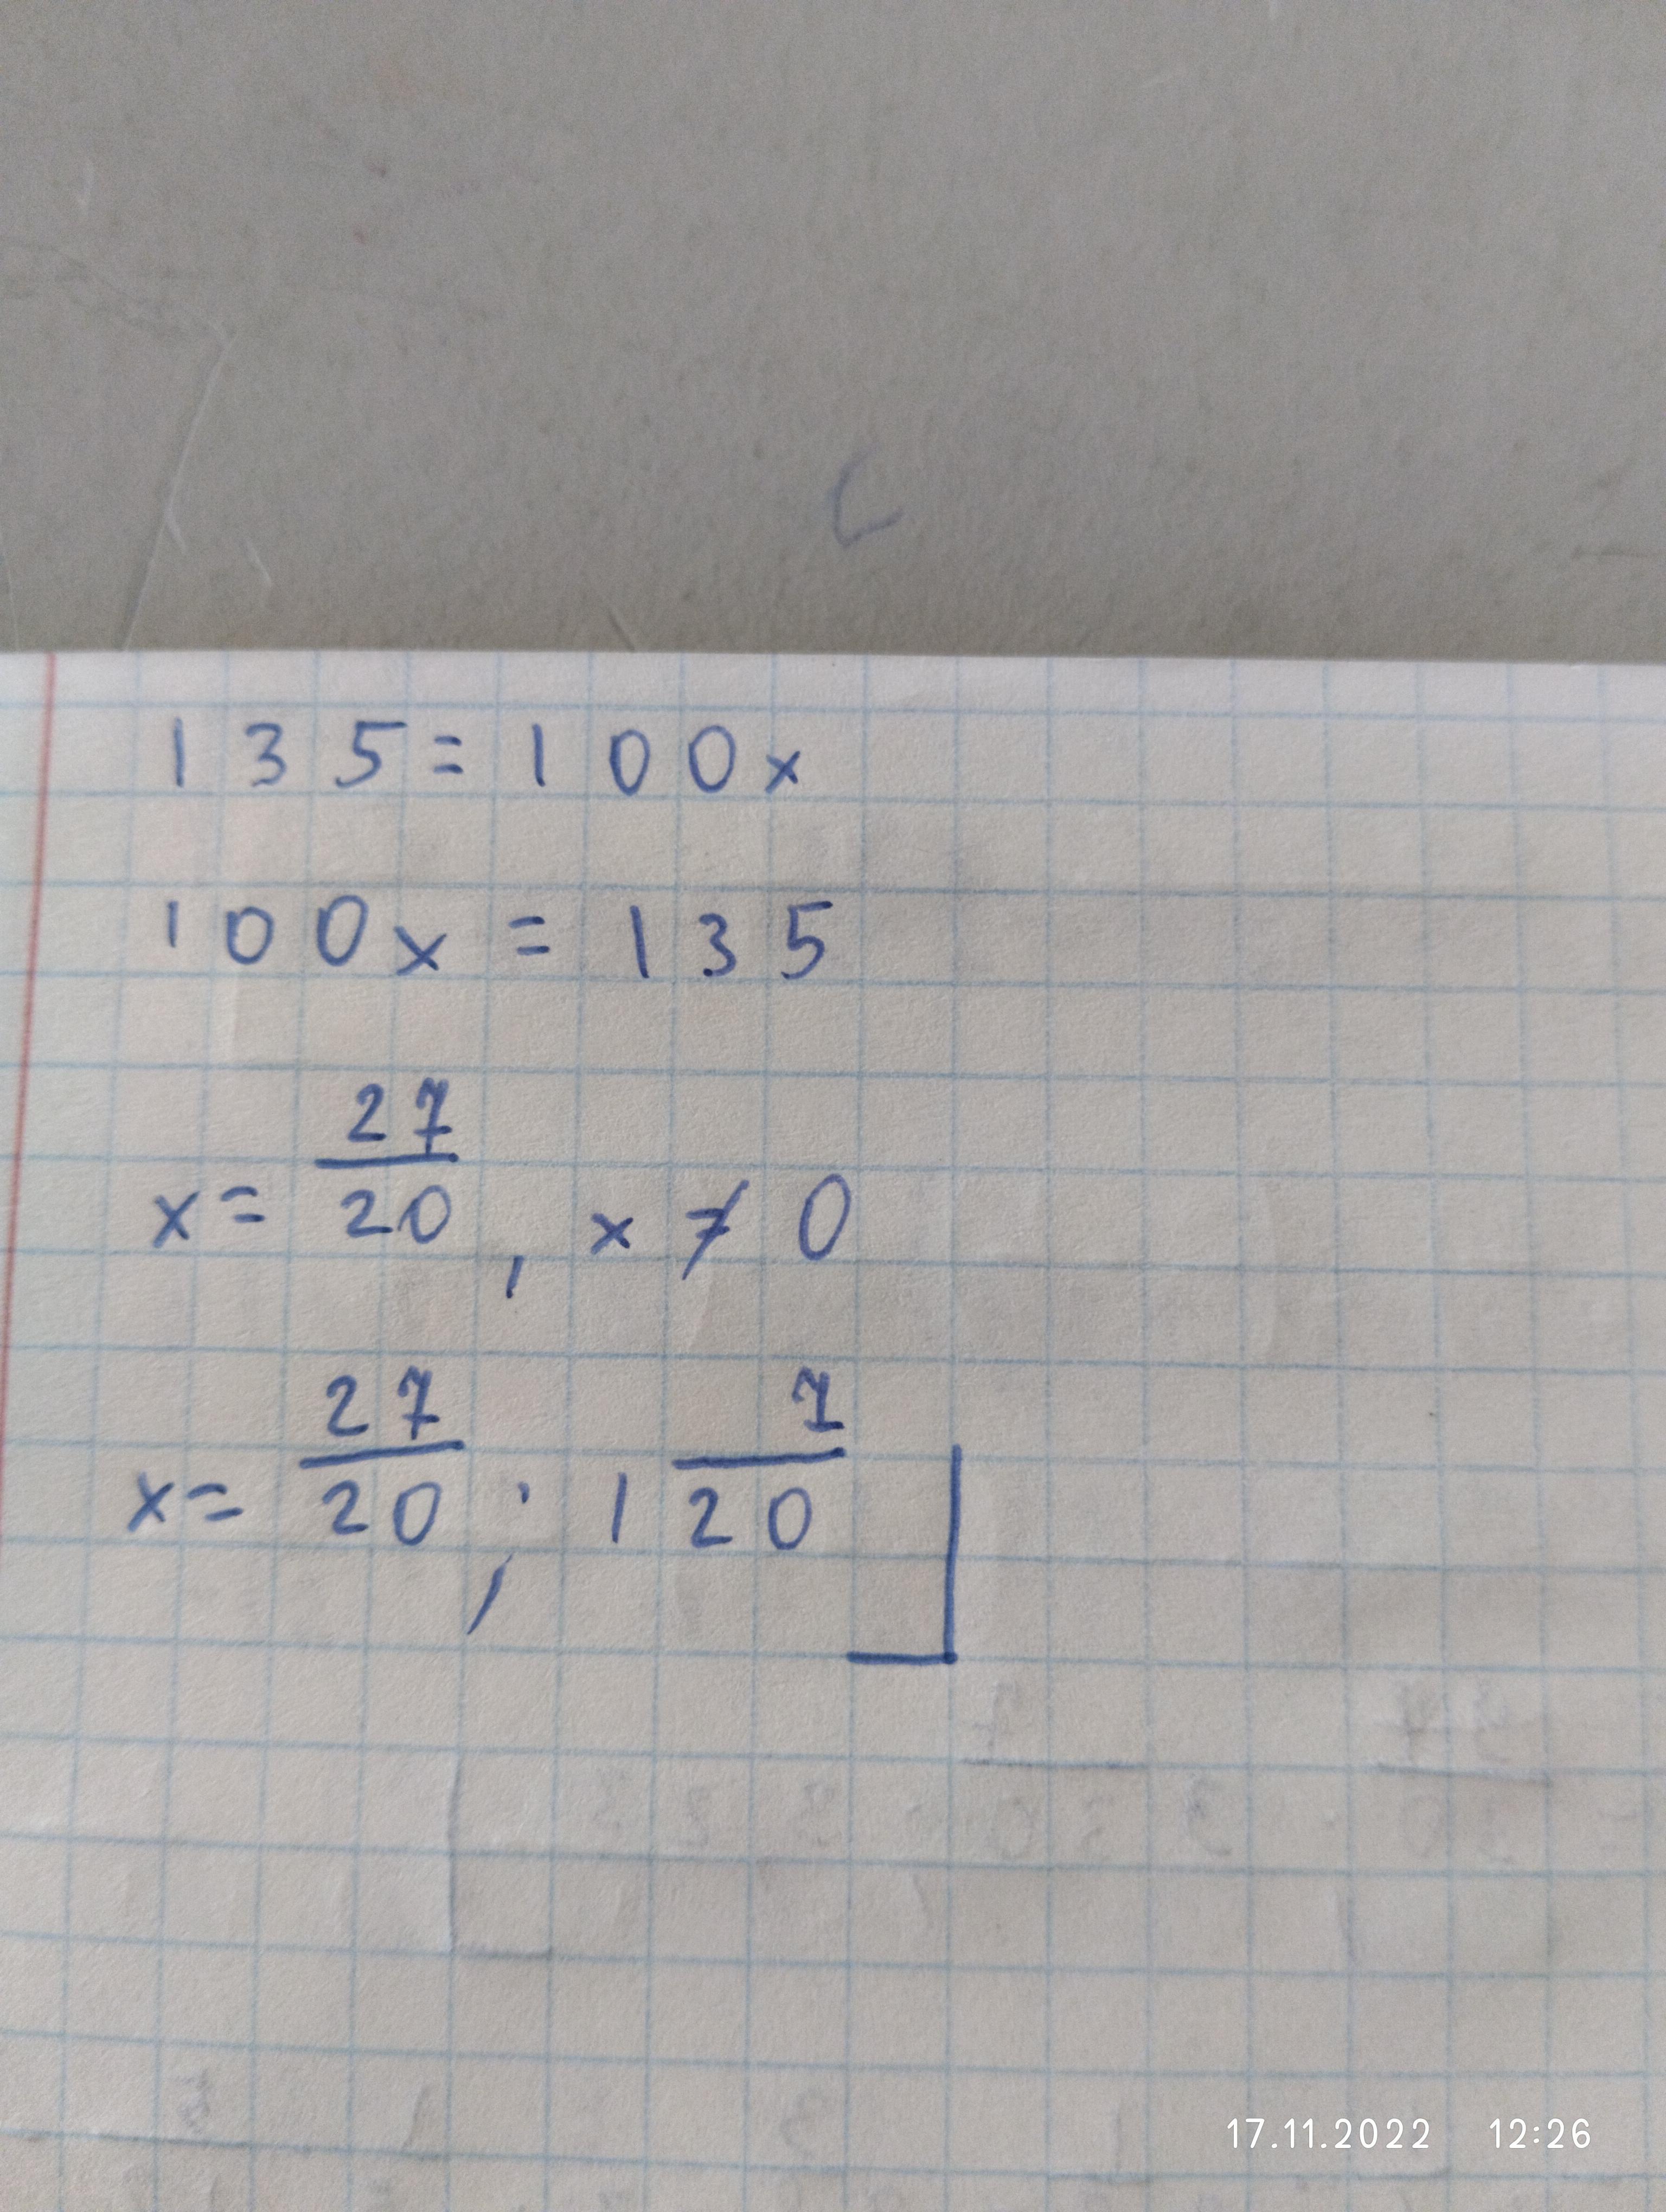 135=100x
100x = 135
x= 27/20, x ≠ 0
x= 27/20; 1 7/20
17.11.2022 12:26